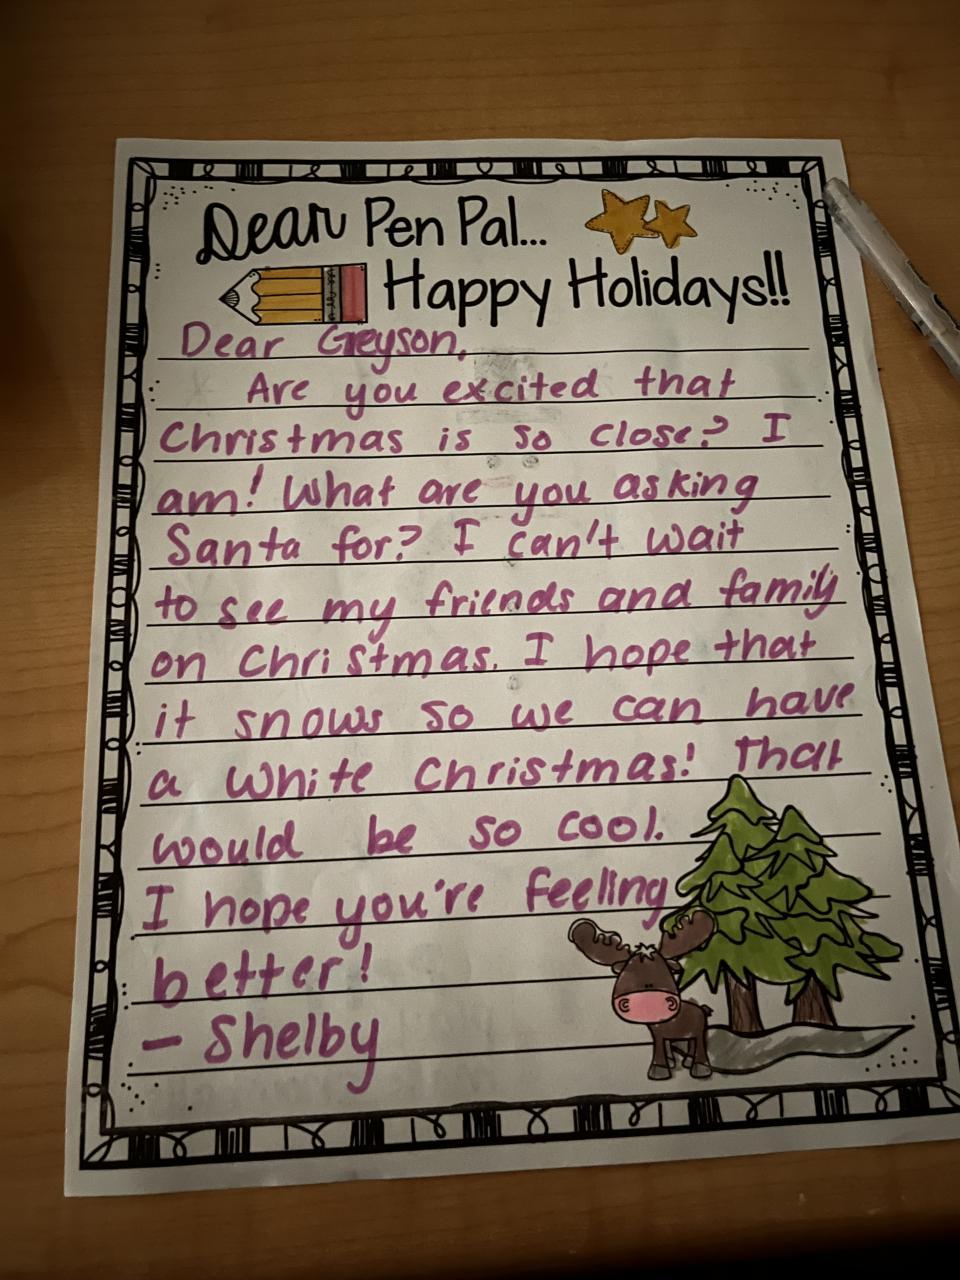 Dear Pen Pal...
Happy Holidays!!
Dear Greyson,
Are you excited that
Christmas is so close? I
am! What are you asking
Santa for? I can't wait
to see my friends and family
on Christmas. I hope that
it snows so we can have
a white Christmas! That
would be so cool.
I hope you're feeling
better!
- Shelby